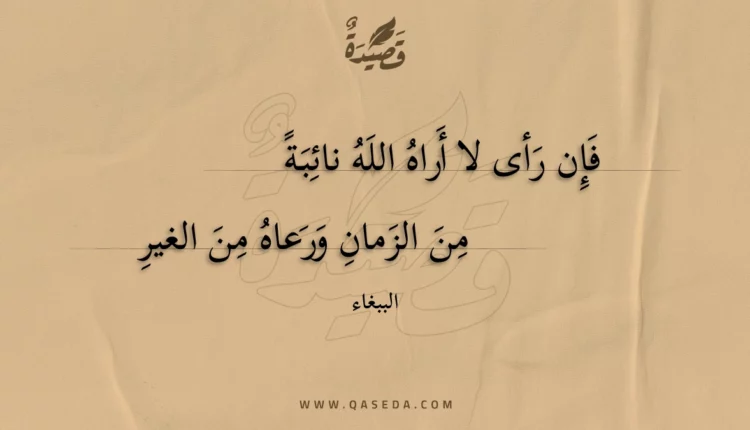 قَصِيدَةٌ
فَإِن رَأى لا أَراهُ اللَهُ نائِبَةً
مِنَ الزَمانِ وَرَعاهُ مِنَ الغيرِ
الببغاء
WWW.QASEDA.COM